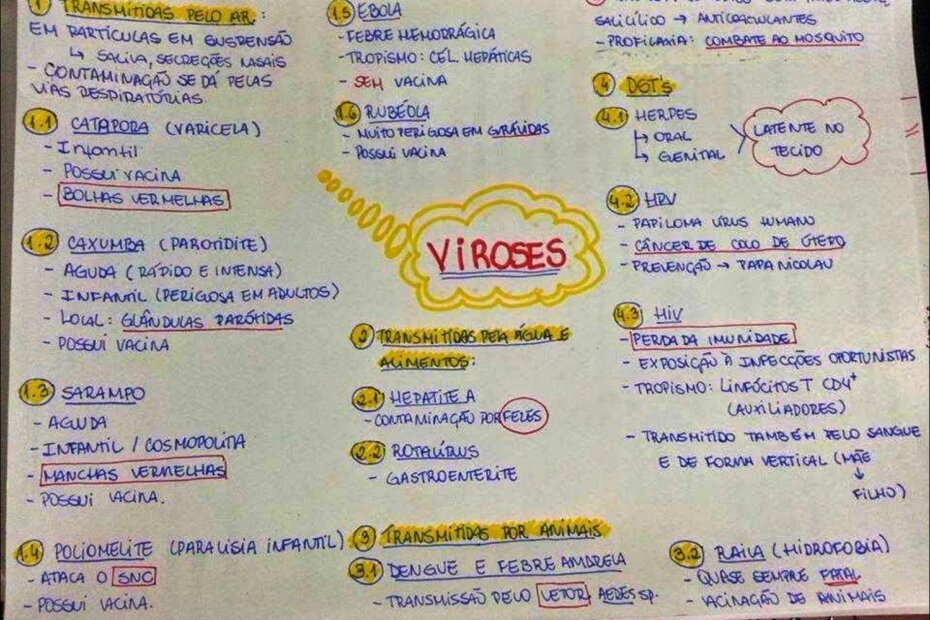 1 TRANSMITIDAS PELO AR:
EM PARTÍCULAS EM SUSPENSÃO
↳ SALIVA, SECREÇÕES NASAIS
- CONTAMINAÇÃO SE DÁ PELAS
VIAS RESPIRATÓRIAS.
1.1 CATAPORA (VARICELA)
- Infantil
- POSSUI VACINA
- BOLHAS VERMELHAS
1.2 CAXUMBA (PAROTIDITE)
- AGUDA (RÁPIDO E INTENSA)
- INFANTIL (PERIGOSA EM ADULTOS)
- LOCAL: GLÂNDULAS PARÓTIDAS
- POSSUI VACINA
1.3 SARAMPO
- AGUDA
- INFANTIL / COSMOPOLITA
- MANCHAS VERMELHAS
- POSSUI VACINA.
1.4 POLIOMELITE (PARALISIA INFANTIL)
- ATACA O SNC
- POSSUI VACINA.
1.5 EBOLA
- FEBRE HEMORRÁGICA
- TROPISMO: CÉL. HEPÁTICAS
- SEM VACINA
1.6 RUBÉOLA
- MUITO PERIGOSA EM GRÁVIDAS
- POSSUI VACINA
VIROSES
2 TRANSMITIDAS PELA ÁGUA E
ALIMENTOS:
2.1 HEPATITE A
- CONTAMINAÇÃO POR FEZES
2.2 ROTAVÍRUS
- GASTROENTERITE
3 TRANSMITIDAS POR ANIMAIS
3.1 DENGUE E FEBRE AMARELA
- TRANSMISSÃO PELO VETOR AEDES SP.
SALICÍLICO → ANTICOAGULANTES
- PROFILAXIA: COMBATE AO MOSQUITO
3.2 RAIVA (HIDROFOBIA)
- QUASE SEMPRE FATAL
- VACINAÇÃO DE ANIMAIS
4 DST'S
4.1 HERPES
↳ ORAL
↳ GENITAL
LATENTE NO
TECIDO
4.2 HPV
- PAPILOMA VÍRUS HUMANO
- CÂNCER DE COLO DE ÚTERO
- PREVENÇÃO → PAPA NICOLAU
4.3 HIV
- PERDA DA IMUNIDADE
- EXPOSIÇÃO À INFECÇÕES OPORTUNISTAS
- TROPISMO: LINFÓCITOS T CD4+
(AUXILIADORES)
- TRANSMITIDO TAMBÉM PELO SANGUE
E DE FORMA VERTICAL (MÃE
↓
FILHO)